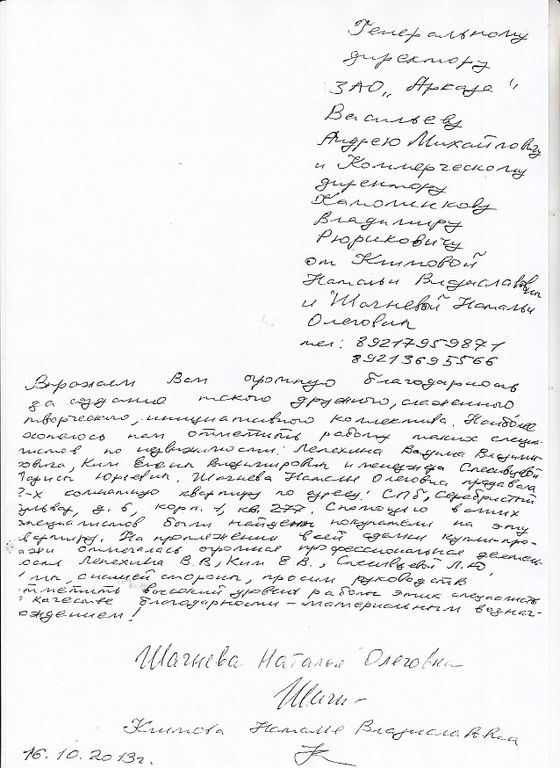 Генеральному
директору
ЗАО „Аркада"
Васильеву
Андрею Михайловичу
и Коммерческому
директору
Хаполинкову
Владимиру
Рюриковичу
от Климовой
Натальи Владиславовны
и Шагневой Натальи
Олеговны
тел: 89217959871
89213695566
Выражаем Вам огромную благодарность
за создание такого дружного, слаженного
творческого, инициативного коллектива. Наиболее
хотелось нам отметить работу таких специа-
листов по недвижимости: Лепехина Вадима Владими-
ровича, Ким Елены Владимировны и менеджера
Ларисы Юрьевны. Шагнева Наталья Олеговна продавала
2-х комнатную квартиру по адресу: СПб, Серебристый
бульвар, д. 6, корп. 1, кв. 277. С помощью ваших
специалистов были найдены покупатели на эту
квартиру. На протяжении всей сделки купли-про-
дажи отмечалась огромная профессиональная
Лепехина В.В, Ким Е.В., Л.Ю
мы, с нашей стороны, просим руководств
отметить высокий уровень работы этих специалистов
в качестве благодарности – материальным вознаг-
раждением!
Шагнева Наталья Олеговна
Климова Наталья Владиславовна
16.10.2013г.